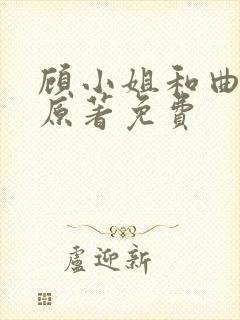 顾小姐和曲
原著免费
卢迎新